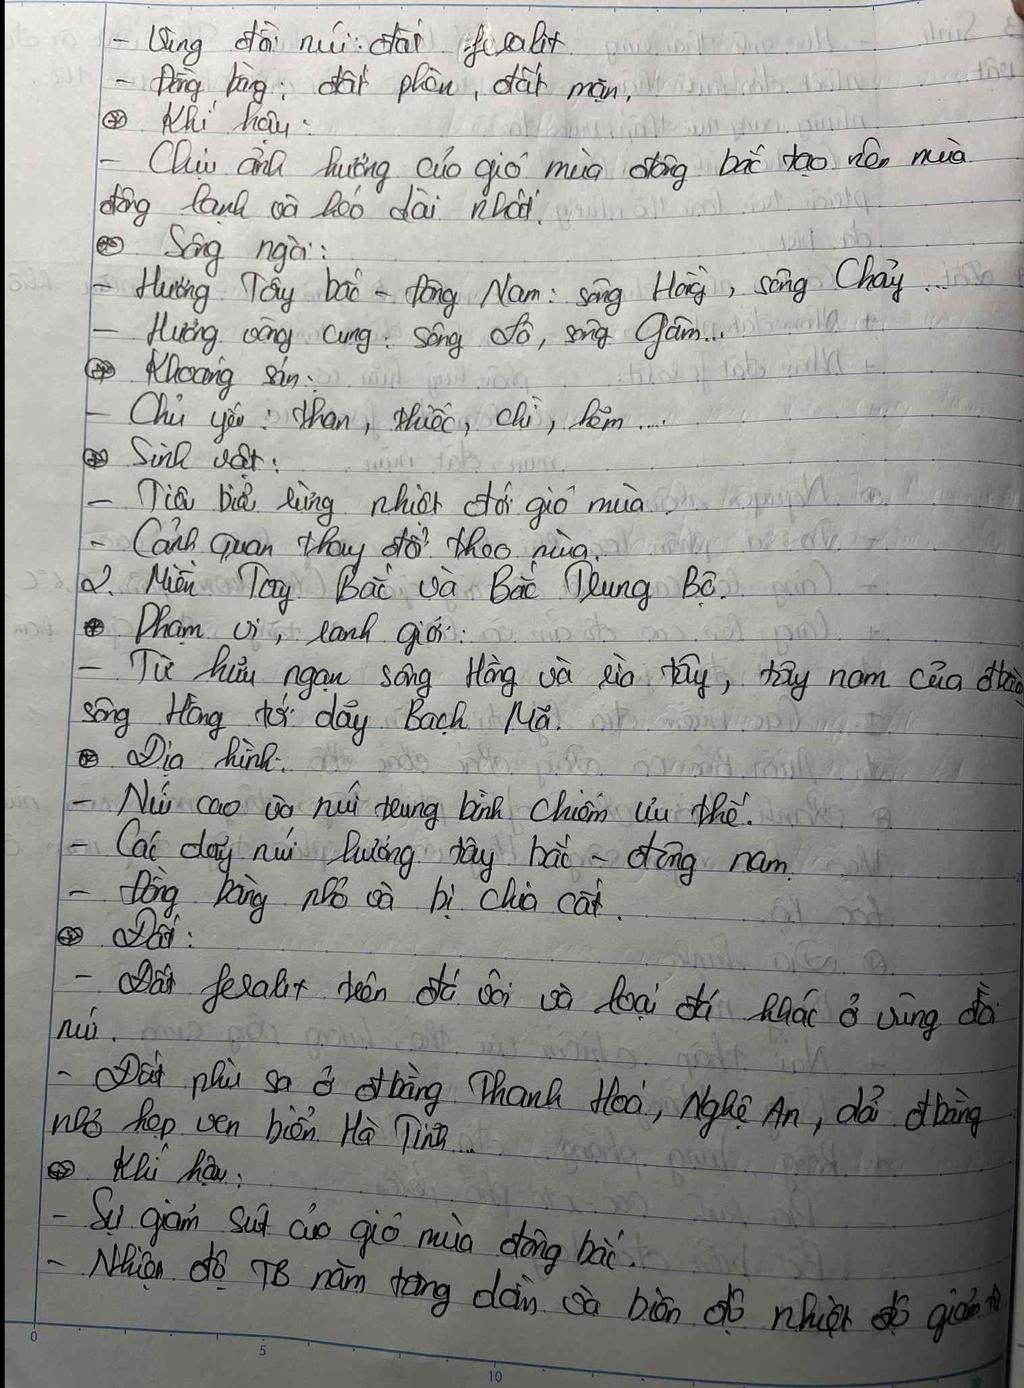 - Vùng đồi núi: đất feralit
- Đồng bằng: đất phèn, đất mặn.
⊛ Khí hậu:
- Chịu ảnh hưởng của gió mùa đông bắc tạo nên mùa
đông lạnh và kéo dài nhất.
⊛ Sông ngòi:
- Hướng Tây bắc - Đông Nam: sông Hồng, sông Chảy...
- Hướng vòng cung: sông Lô, sông Gâm...
⊛ Khoáng sản:
- Chủ yếu: than, thiếc, chì, kẽm....
⊛ Sinh vật:
- Tiêu biểu rừng nhiệt đới gió mùa.
- Cảnh quan thay đổi theo mùa.
2. Miền Tây Bắc và Bắc Trung Bộ.
⊛ Phạm vi, ranh giới:
- Từ hữu ngạn sông Hồng và rìa tây, tây nam của đbằng
sông Hồng tới dãy Bạch Mã.
⊛ Địa hình:
- Núi cao và núi trung bình chiếm ưu thế.
- Các dãy núi hướng tây bắc - đông nam.
- Đồng bằng nhỏ và bị chia cắt.
⊛ Đất:
- Đất feralit trên đá vôi và loại đá khác ở vùng đồi
núi.
- Đất phù sa ở đbằng Thanh Hoá, Nghệ An, dải đbằng
nhỏ hẹp ven biển Hà Tĩnh...
⊛ Khí hậu:
- Sự giảm sút của gió mùa đông bắc.
- Nhiệt độ TB năm tăng dần và biên độ nhiệt độ giảm
0 5 10